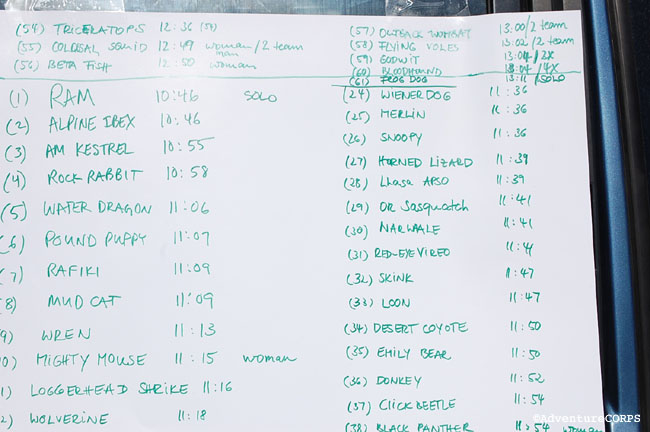 (54) TRICERATOPS 12:36 (54)
(55) COLOSAL SQUID 12:49 woman/2 team
man
(56) BETA FISH 12:50 woman
(1) RAM 10:46 SOLO
(2) ALPINE IBEX 10:46
(3) AM KESTREL 10:55
(4) ROCK RABBIT 10:58
(5) WATER DRAGON 11:06
(6) POUND PUPPY 11:07
7) RAFIKI 11:09
8) MUD CAT 11:09
9) WREN 11:13
0) MIGHTY MOUSE 11:15 woman
1) LOGGERHEAD SHRIKE 11:16
2) WOLVERINE 11:18
(57) OUTBACK WOMBAT 13:00/2 team
(58) FLYING VOLES 13:02/2 team
(59) GODWIT 13:04/2X
(60) BLOODHOUND 13:04/4X
(61) FROG DOG 13:11/SOLO
(24) WIENER DOG 11:36
(25) MERLIN 11:36
(26) SNOOPY 11:36
(27) HORNED LIZARD 11:39
(28) Lhasa APSO 11:39
(29) OR Sasquatch 11:41
(30) NARWALE 11:41
(31) RED-EYE VIREO 11:41
(32) SKINK 11:47
(33) LOON 11:47
(34) DESERT COYOTE 11:50
(35) EMILY BEAR 11:50
(36) DONKEY 11:52
(37) CLICK BEETLE 11:54
(38) BLACK PANTHER 11:54 woman
©AdventureCORPS